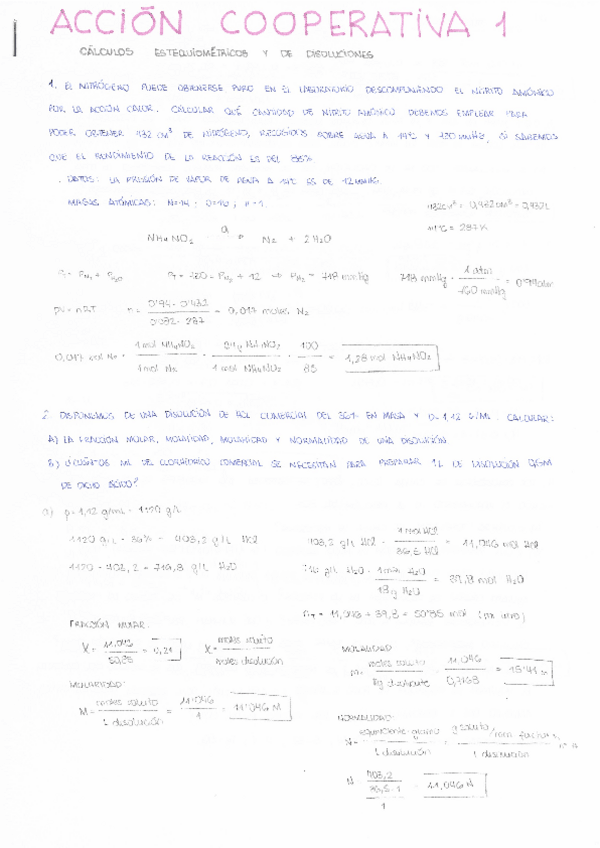 ACCIÓN COOPERATIVA 1
CÁLCULOS ESTEQUIOMÉTRICOS Y DE DISOLUCIONES
1. EL NITRÓGENO PUEDE OBTENERSE PURO EN EL LABORATORIO DESCOMPONIENDO EL NITRITO AMÓNICO
POR LA ACCIÓN CALOR. CALCULAR QUÉ CANTIDAD DE NITRITO AMÓNICO DEBEMOS EMPLEAR PARA
PODER OBTENER 432 cm³ DE NITRÓGENO, RECOGIDOS SOBRE AGUA A 14ºC Y 730 mmHg, SI SABEMOS
QUE EL RENDIMIENTO DE LA REACCIÓN ES DEL 85%
DATOS: LA PRESIÓN DE VAPOR DE AGUA A 14ºC ES DE 12 mmHg.
MASAS ATÓMICAS: N=14; O=16; H=1.
NH₄NO₂ → N₂ + 2H₂O
PT = PN₂ + PH₂O
718 mmHg · 1 atm / 760 mmHg = 0'94 atm
PV = nRT n = 0'94 · 0'432 / 0'082 · 287 = 0,017 moles N₂
0,017 mol N₂ · 1 mol NH₄NO₂ / 1 mol N₂ · 64g NH₄NO₂ / 1 mol NH₄NO₂ · 100 / 85 = 1,28 mol NH₄NO₂
2. DISPONEMOS DE UNA DISOLUCIÓN DE HCl COMERCIAL DEL 36% EN MASA Y D=1,12 g/mL. CALCULAR:
A) LA FRACCIÓN MOLAR, MOLALIDAD, MOLARIDAD Y NORMALIDAD DE UNA DISOLUCIÓN.
B) ¿CUÁNTOS mL DEL CLORHÍDRICO COMERCIAL SE NECESITAN PARA PREPARAR 1L DE DISOLUCIÓN
DE DICHO ÁCIDO?
a) ρ = 1,12 g/mL = 1120 g/L
1120 g/L · 36% = 403,2 g/L HCl
403,2 g/L HCl · 1 mol HCl / 36,5 HCl = 11,046 mol HCl
1120 - 403,2 = 716,8 g/L H₂O
g/L H₂O · 1 mol H₂O / 18g H₂O = 39,8 mol H₂O
nT = 11,046 + 39,8 = 50'85 mol
FRACCIÓN MOLAR:
X = 11,046 / 50,85 = 0,21 X = moles soluto / moles disolución
MOLALIDAD
m = moles soluto / Kg disolvente = 11,046 / 0,7168 = 15'41 m
MOLARIDAD:
M = moles soluto / L disolución = 11'046 / 1 = 11'046 M
NORMALIDAD:
N = equivalente-gramo / L disolución = g soluto / L disolución
N 403,2 / 36,5 · 1 / 1 = 11,046 N